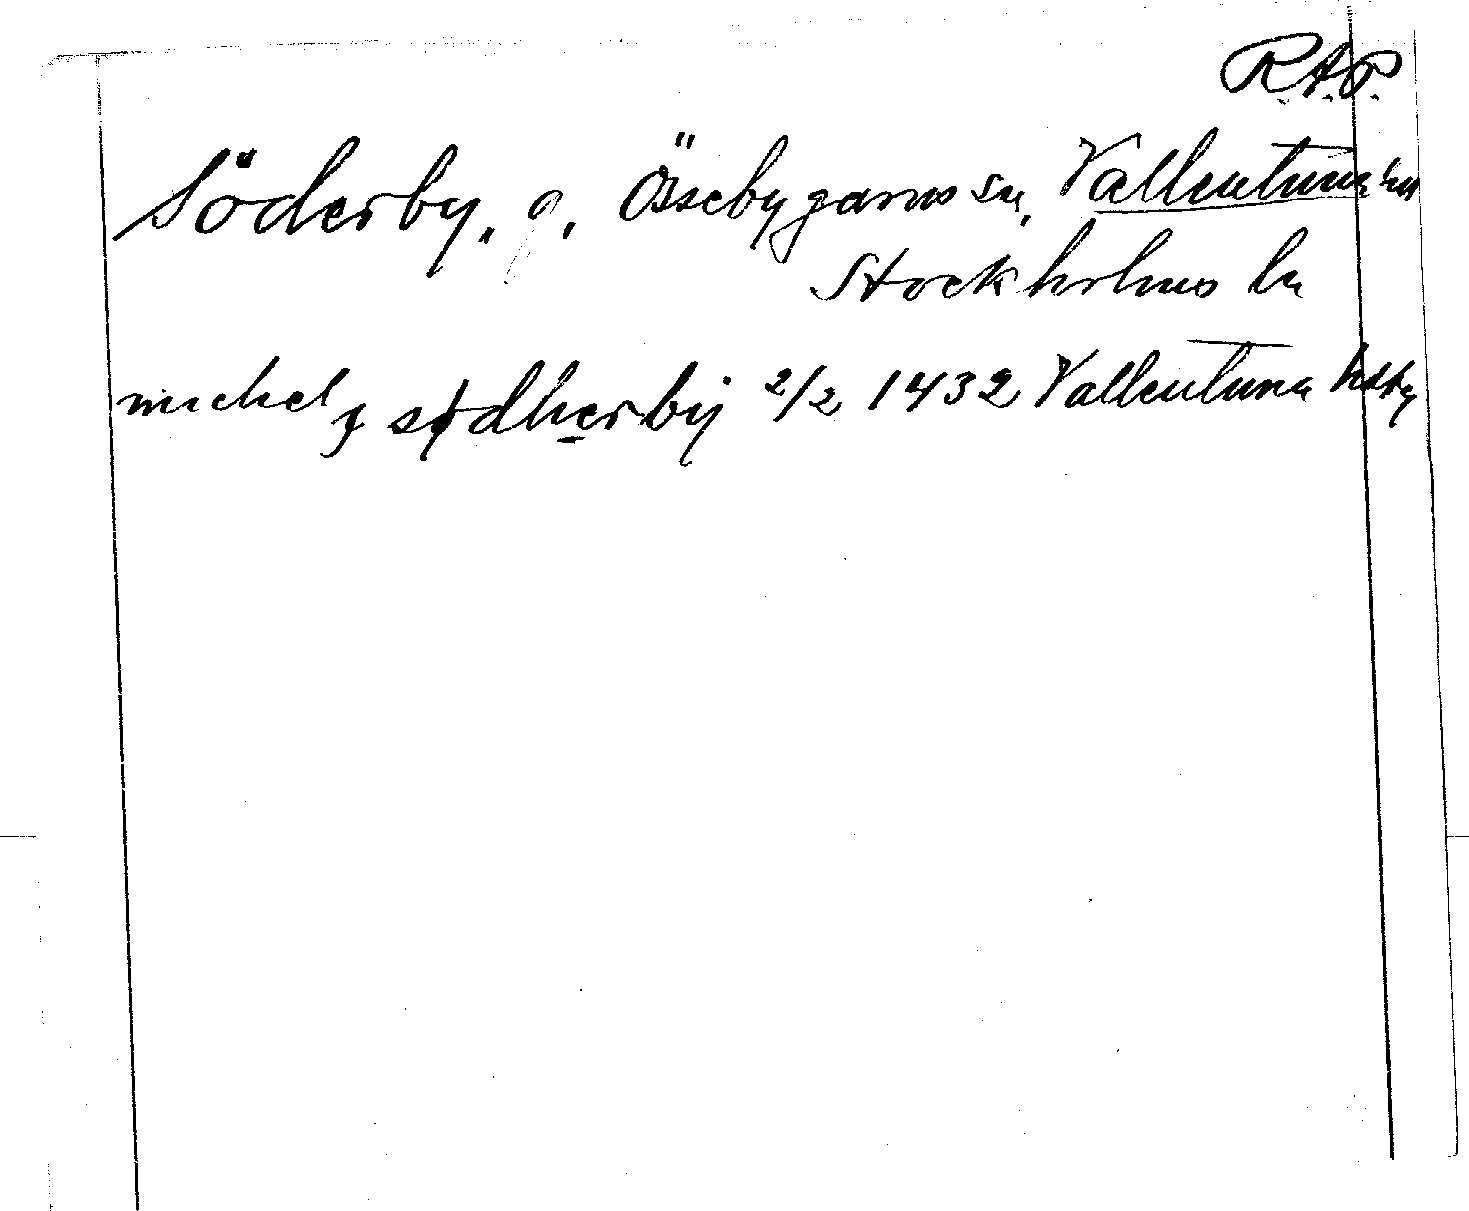 R.A.P.
Söderby, g. Össebygarns sn, Vallentuna hd
Stockholms ln
michel j sødherbÿ 2/2 1432 Vallentuna